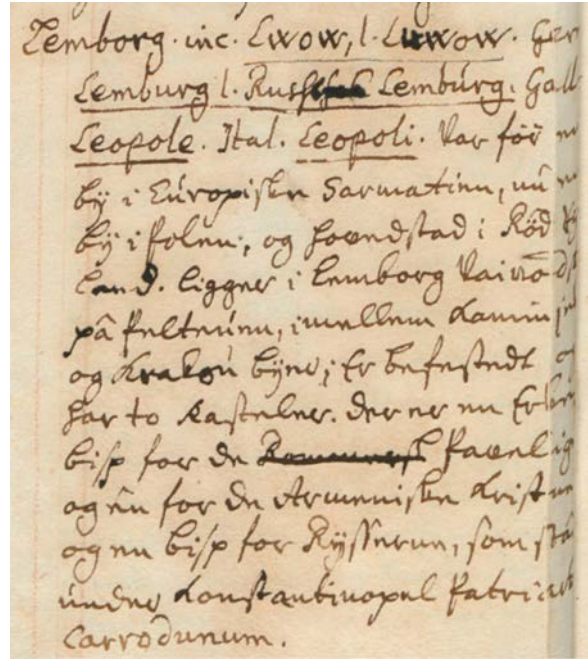 Lemborg. inc. Lwow, l. Luwow. Ger
Lemburg l. Russ Lemburg. Gall
Leopole. Ital. Leopoli. Var för
by i Europisken Sarmatien, nu
bÿ i Polen, og hovedstad i Röd
land. ligger i Lemborg
pâ Pelteuen, imellem Kamin
og Krakou byer; Er befestedt
har to Kasteler. der er en
bisp for de Pavelig
og ên for de Armeniske Krist
og en bisp for Ryssêrne, som stâ
under Konstantinopel Patriark
Carrodunum.